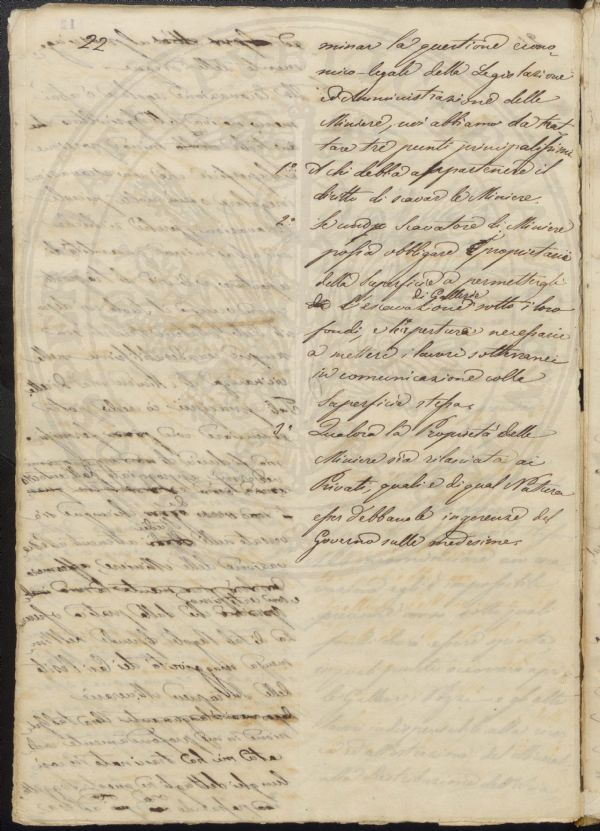 22
minar la questione econo-
mico-legale della Legislazione
ed Amministrazione delle
Miniere, noi abbiamo da trat
tare tre punti principalissimi
1° A chi debba appartenere il
diritto di scavar le Miniere.
2° Se un Scavatore di Miniere
possa obbligare i proprietarii
della Superficie a permettergli
l'escavazione di Gallerie sotto i loro
fondi, e l'apertura necessaria
a mettere i lavori sotterranei
in comunicazione colla
Superficie stessa.
2° Qualora la Proprietà delle
Miniere sia rilasciata ai
Privati, quali e di qual Natura
esser debbano le ingerenze del
Governo sulle medesime.